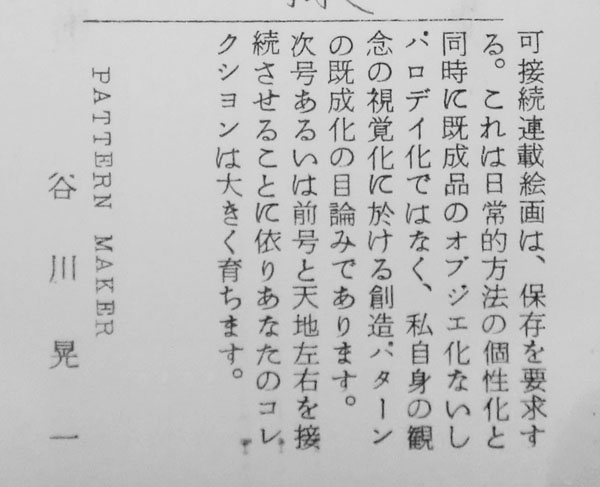 可接続連載絵画は、保存を要求す
る。これは日常的方法の個性化と
同時に既成品のオブジエ化ないし
パロデイ化ではなく、私自身の観
念の視覚化に於ける創造パターン
の既成化の目論みであります。
次号あるいは前号と天地左右を接
続させることに依りあなたのコレ
クションは大きく育ちます。
PATTERN MAKER
谷川晃一